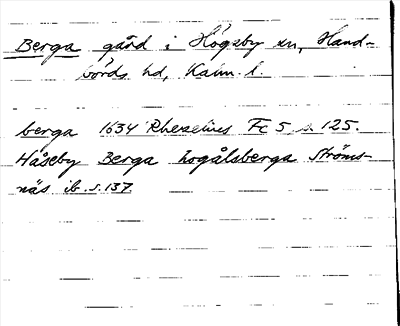 Berga gård i Högsby sn, Hand-
börds hd, Kalm. l.
berga 1634 Rhezelius Fc 5 s. 125.
Håseby Berga hogålsberga Ströms-
näs ib. s. 137.